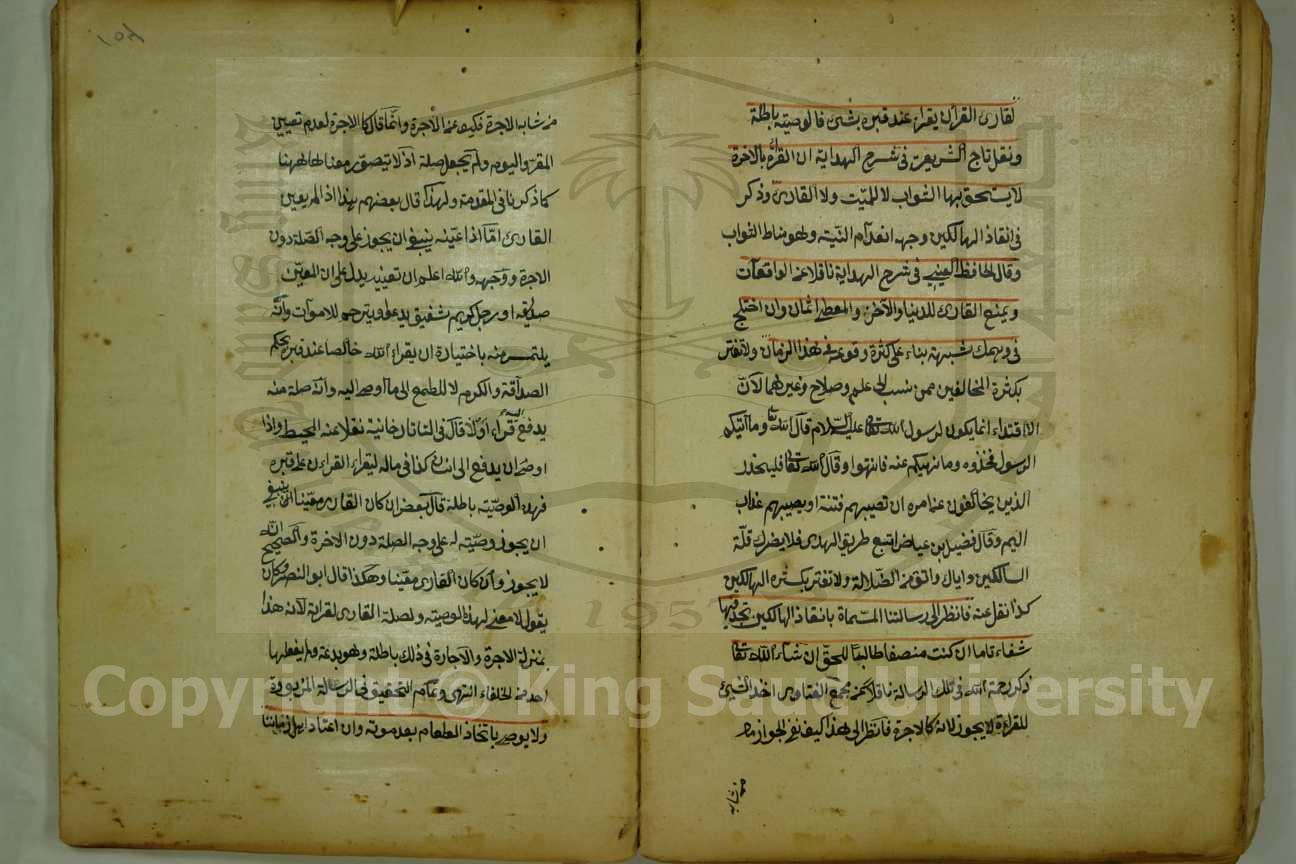 لقارئ القرآن يقراء عند قبره بشئ فالوصيته باطلة
ونقل تاج الشريعة في شرح الهداية ان القرأة بالاجرة
لا يستحق بها الثواب لا للميت ولا القارئ وذكر
في انقاذ الهالكين وجهه انعدام النية وهو مناط الثواب
وقال الحافظ العيني في شرح الهداية ناقلا عن الواقعات
ويمنع القارئ للدنيا والآخذ والمعطي اثمان وان اختلج
في وهمك شبهة بناء على كثرة وقوعه في هذا الزمان ولا تغتر
بكثرة المخالفين ممن نسب الى علم وصلاح وغيرهما لان
الاقتداء انما يكون لرسول الله تعالى عليه السلام قال الله تعالى وما آتيكم
الرسول فخذوه وما نهيكم عنه فانتهوا وقال الله تعالى فليحذر
الذين يخالفون عن امره ان تصيبهم فتنة او يصيبهم عذاب
اليم وقال فضيل بن عياض اتبع طريق الهدى فلا يضرك قلة
السالكين واياك والتو من الضلالة ولا تغتر بكثرة الهالكين
كذا نقل عنه فانظر الى رسالتنا المسماة بانقاذ الهالكين تجد فيها
شفاء تاما ان كنت منصفا طالبا للحق ان شاء الله تعالى
ذكر رحمة الله في تلك الرسالة ناقلا عن مجمع الفتاوى اخذ الشئ
للقراءة لا يجوز لانه كالاجرة فانظر الى هذا كيف نفى الجواز مما
من شابه
١٥٨
من شابه الاجرة فكيف عن الاجرة وانما قال كالاجرة لعدم تعيين
المقر واليوم ولم يجعل صلة اذ لا يتصور معناها ههنا
كما ذكرنا في المقدمة ولهذا قال بعضهم هذا اذا لم يعين
القارئ اما اذا عينه ينبغي ان يجوز على وجه الصلة دون
الاجرة ووجهه والله اعلم ان تعيينه يدل على ان المعين
صديقه او رجل كريم شفيق يدعو ويترحم للاموات وانه
يلتمس منه باختياره ان يقراء الله خالصا عند قبره بحكم
الصداقة والكرم لا للطمع الى ما اوصى اليه وانه صلة منه
يدفع اليه قراء اولا قال في التاتارخانية نقلا عن المحيط واذا
اوصى ان يدفع الى انسان كذا في ماله ليقراء القراءن على قبره
فهذه الوصية باطلة قال بعض ان كان القارئ معينا ينبغي
ان يجوز وصيته له على وجه الصلة دون الاجرة والصحيح انه
لا يجوز وأن كان القارئ معينا وهكذا قال ابو النصر وكان
يقول لا معنى لهذه الوصية ولصلة القارئ لقرائة لانه هذا
بمنزلة الاجرة والاجارة في ذلك باطلة وهو بدعة ولم يفعلها
احد من الخلفاء انتهى وتمام التحقيق في الرسالة المزبورة
ولا يوصى باتخاذ الطعام بعد موته وان اعتاد اهل زماننا
Copyright © King Saud University
1957